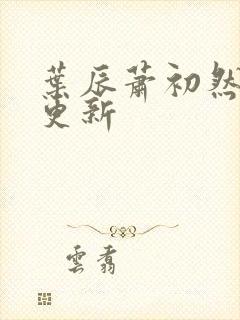 葉辰蕭初然
更新
雲看